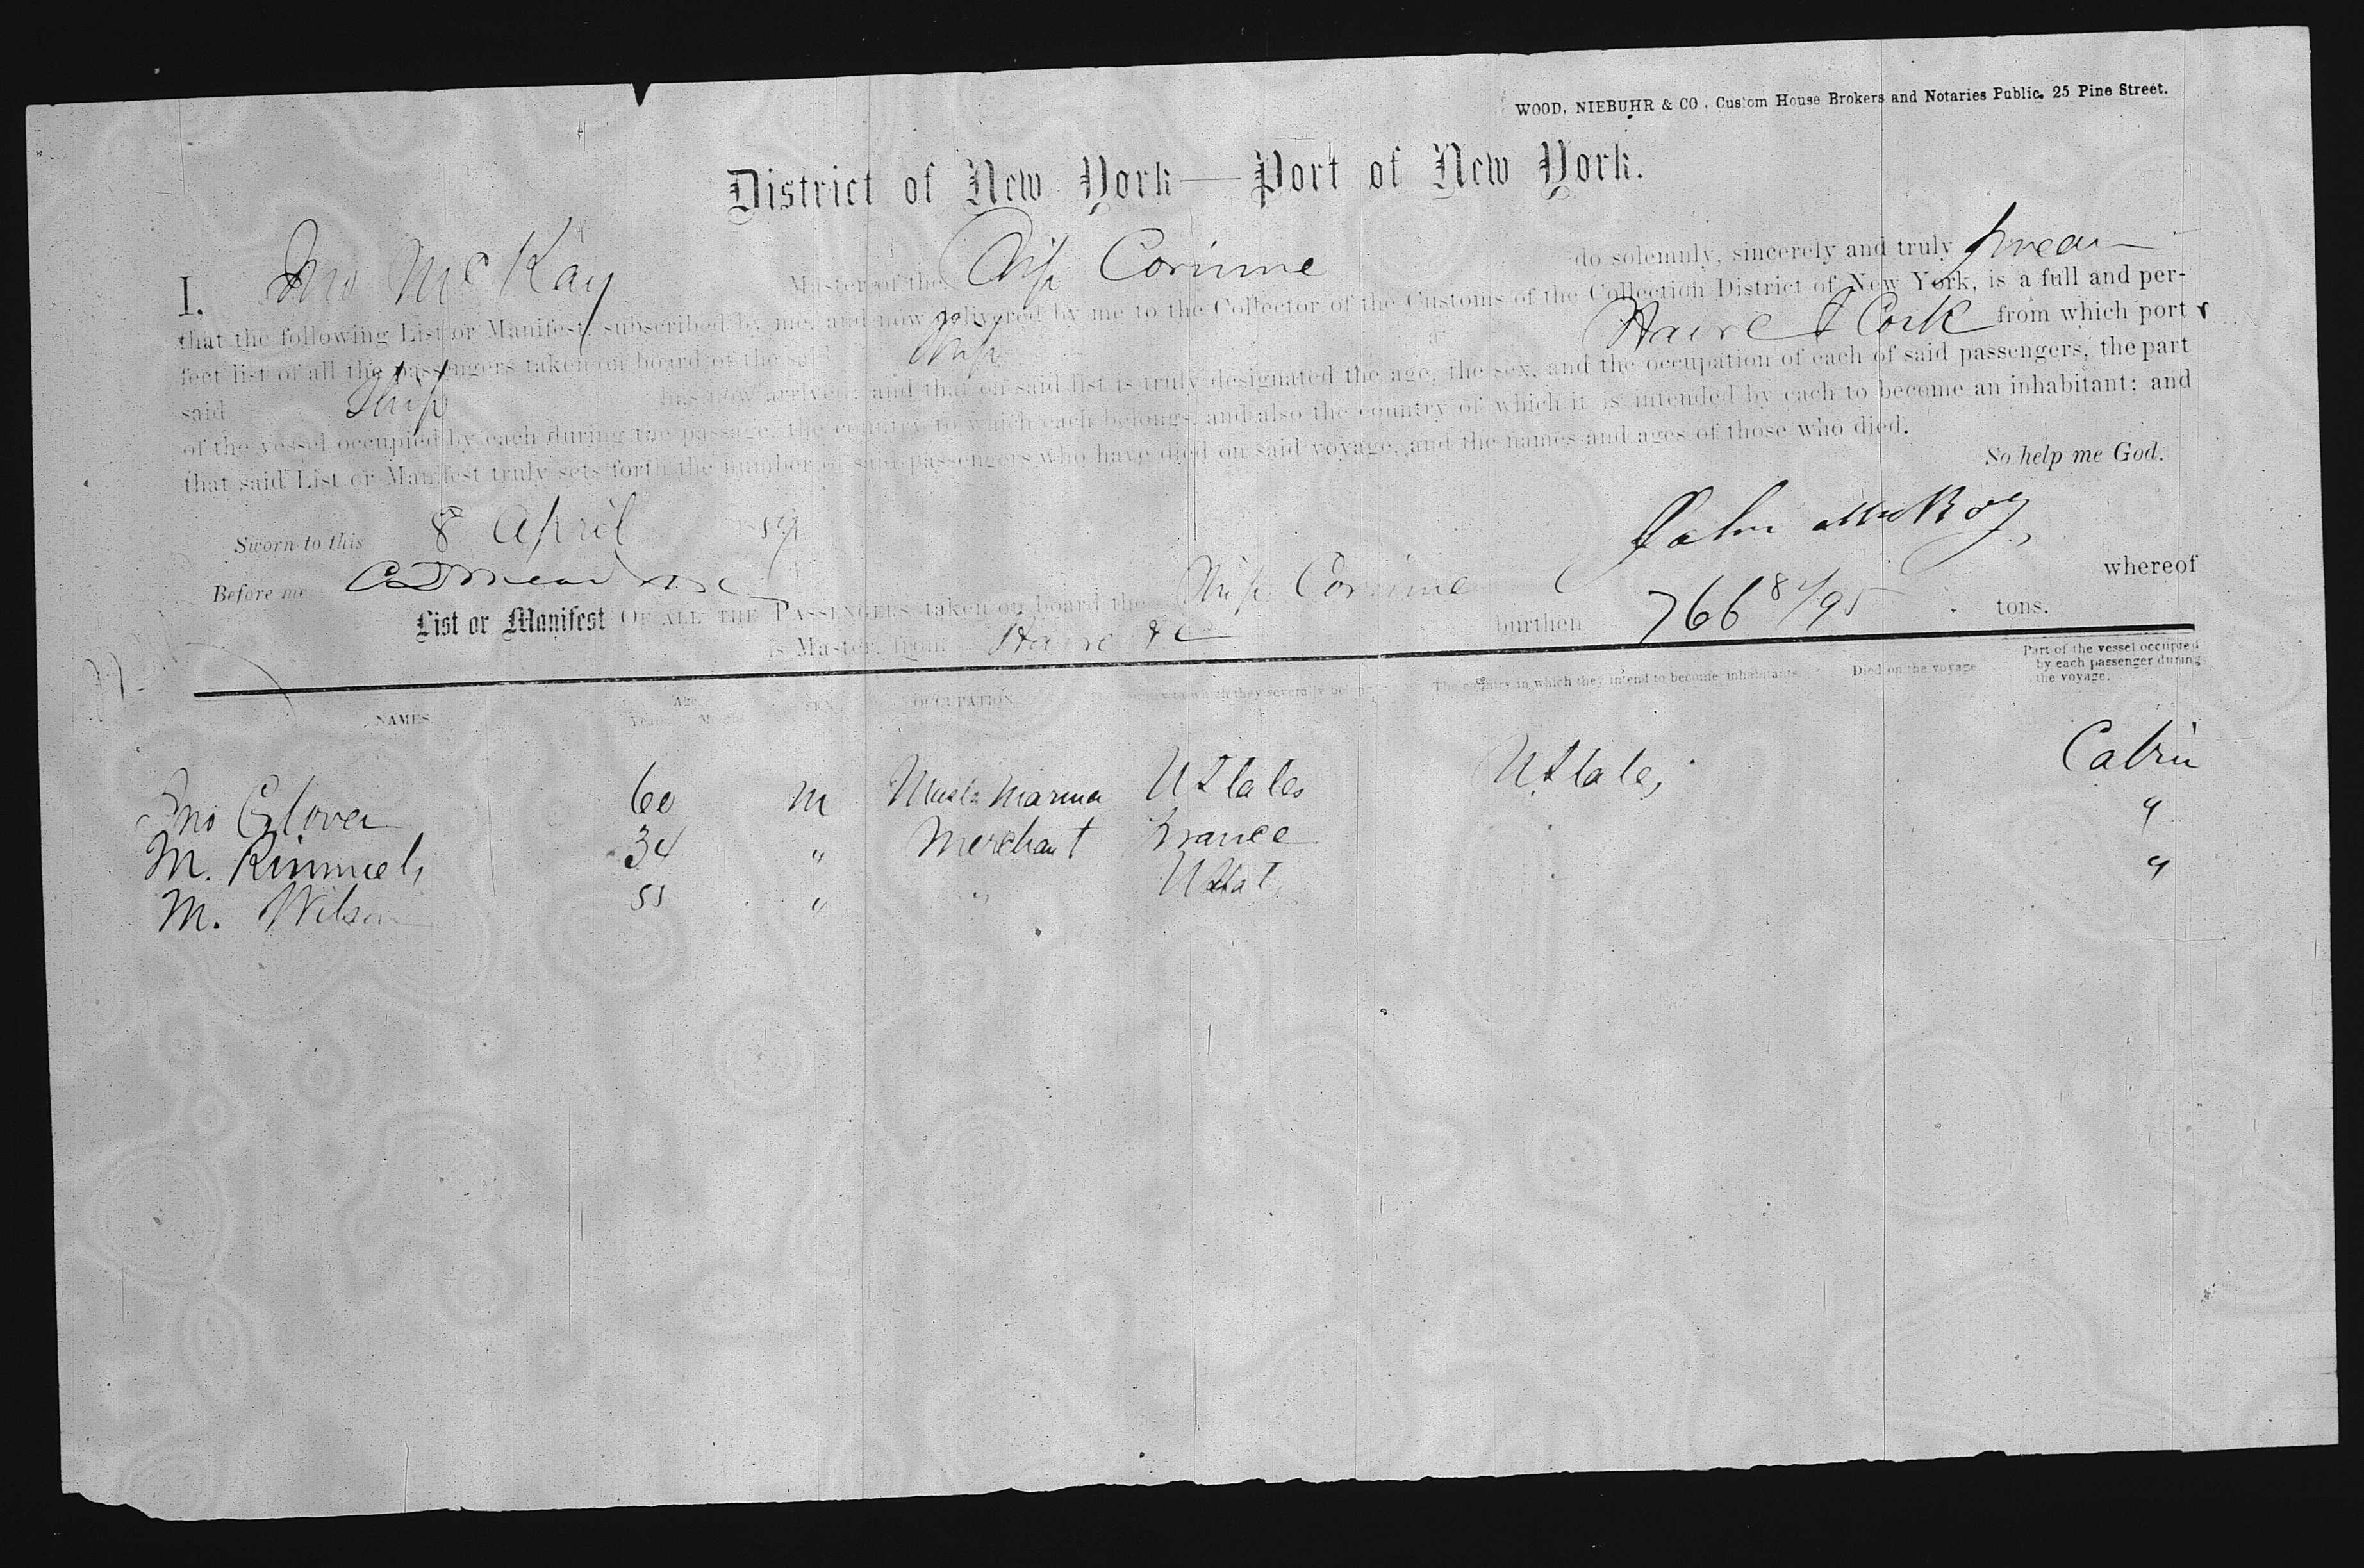 WOOD, NIEBUHR & CO., Custom House Brokers and Notaries Public, 25 Pine Street.
District of New York—Port of New York.
I, Jno McKay Master of the Ship Corinne do solemnly, sincerely and truly swear
that the following List or Manifest, subscribed by me, and now delivered by me to the Collector of the Customs of the Collection District of New York, is a full and per-
fect list of all the passengers taken on board of the said Ship at Havre & Cork from which port
said Ship has now arrived; and that on said list is truly designated the age, the sex, and the occupation of each of said passengers, the part
of the vessel occupied by each during the passage, the country to which each belongs, and also the country of which it is intended by each to become an inhabitant; and
that said List or Manifest truly sets forth the number of said passengers who have died on said voyage, and the names and ages of those who died.
So help me God.
Sworn to this 8 April 1859
John McKay
Before me
List or Manifest OF ALL THE PASSENGERS taken on board the Ship Corinne whereof
is Master, from Havre &c burthen 766 tons.
NAMES. Age Years Months SEX. OCCUPATION. to which they severally belong. The country in which they intend to become inhabitants. Died on the voyage. Part of the vessel occupied by each passenger during the voyage.
Jno Glover 60 M Mariner U States U States Cabin
M. 34 " Merchant France "
M. Wilson " " U Stat "